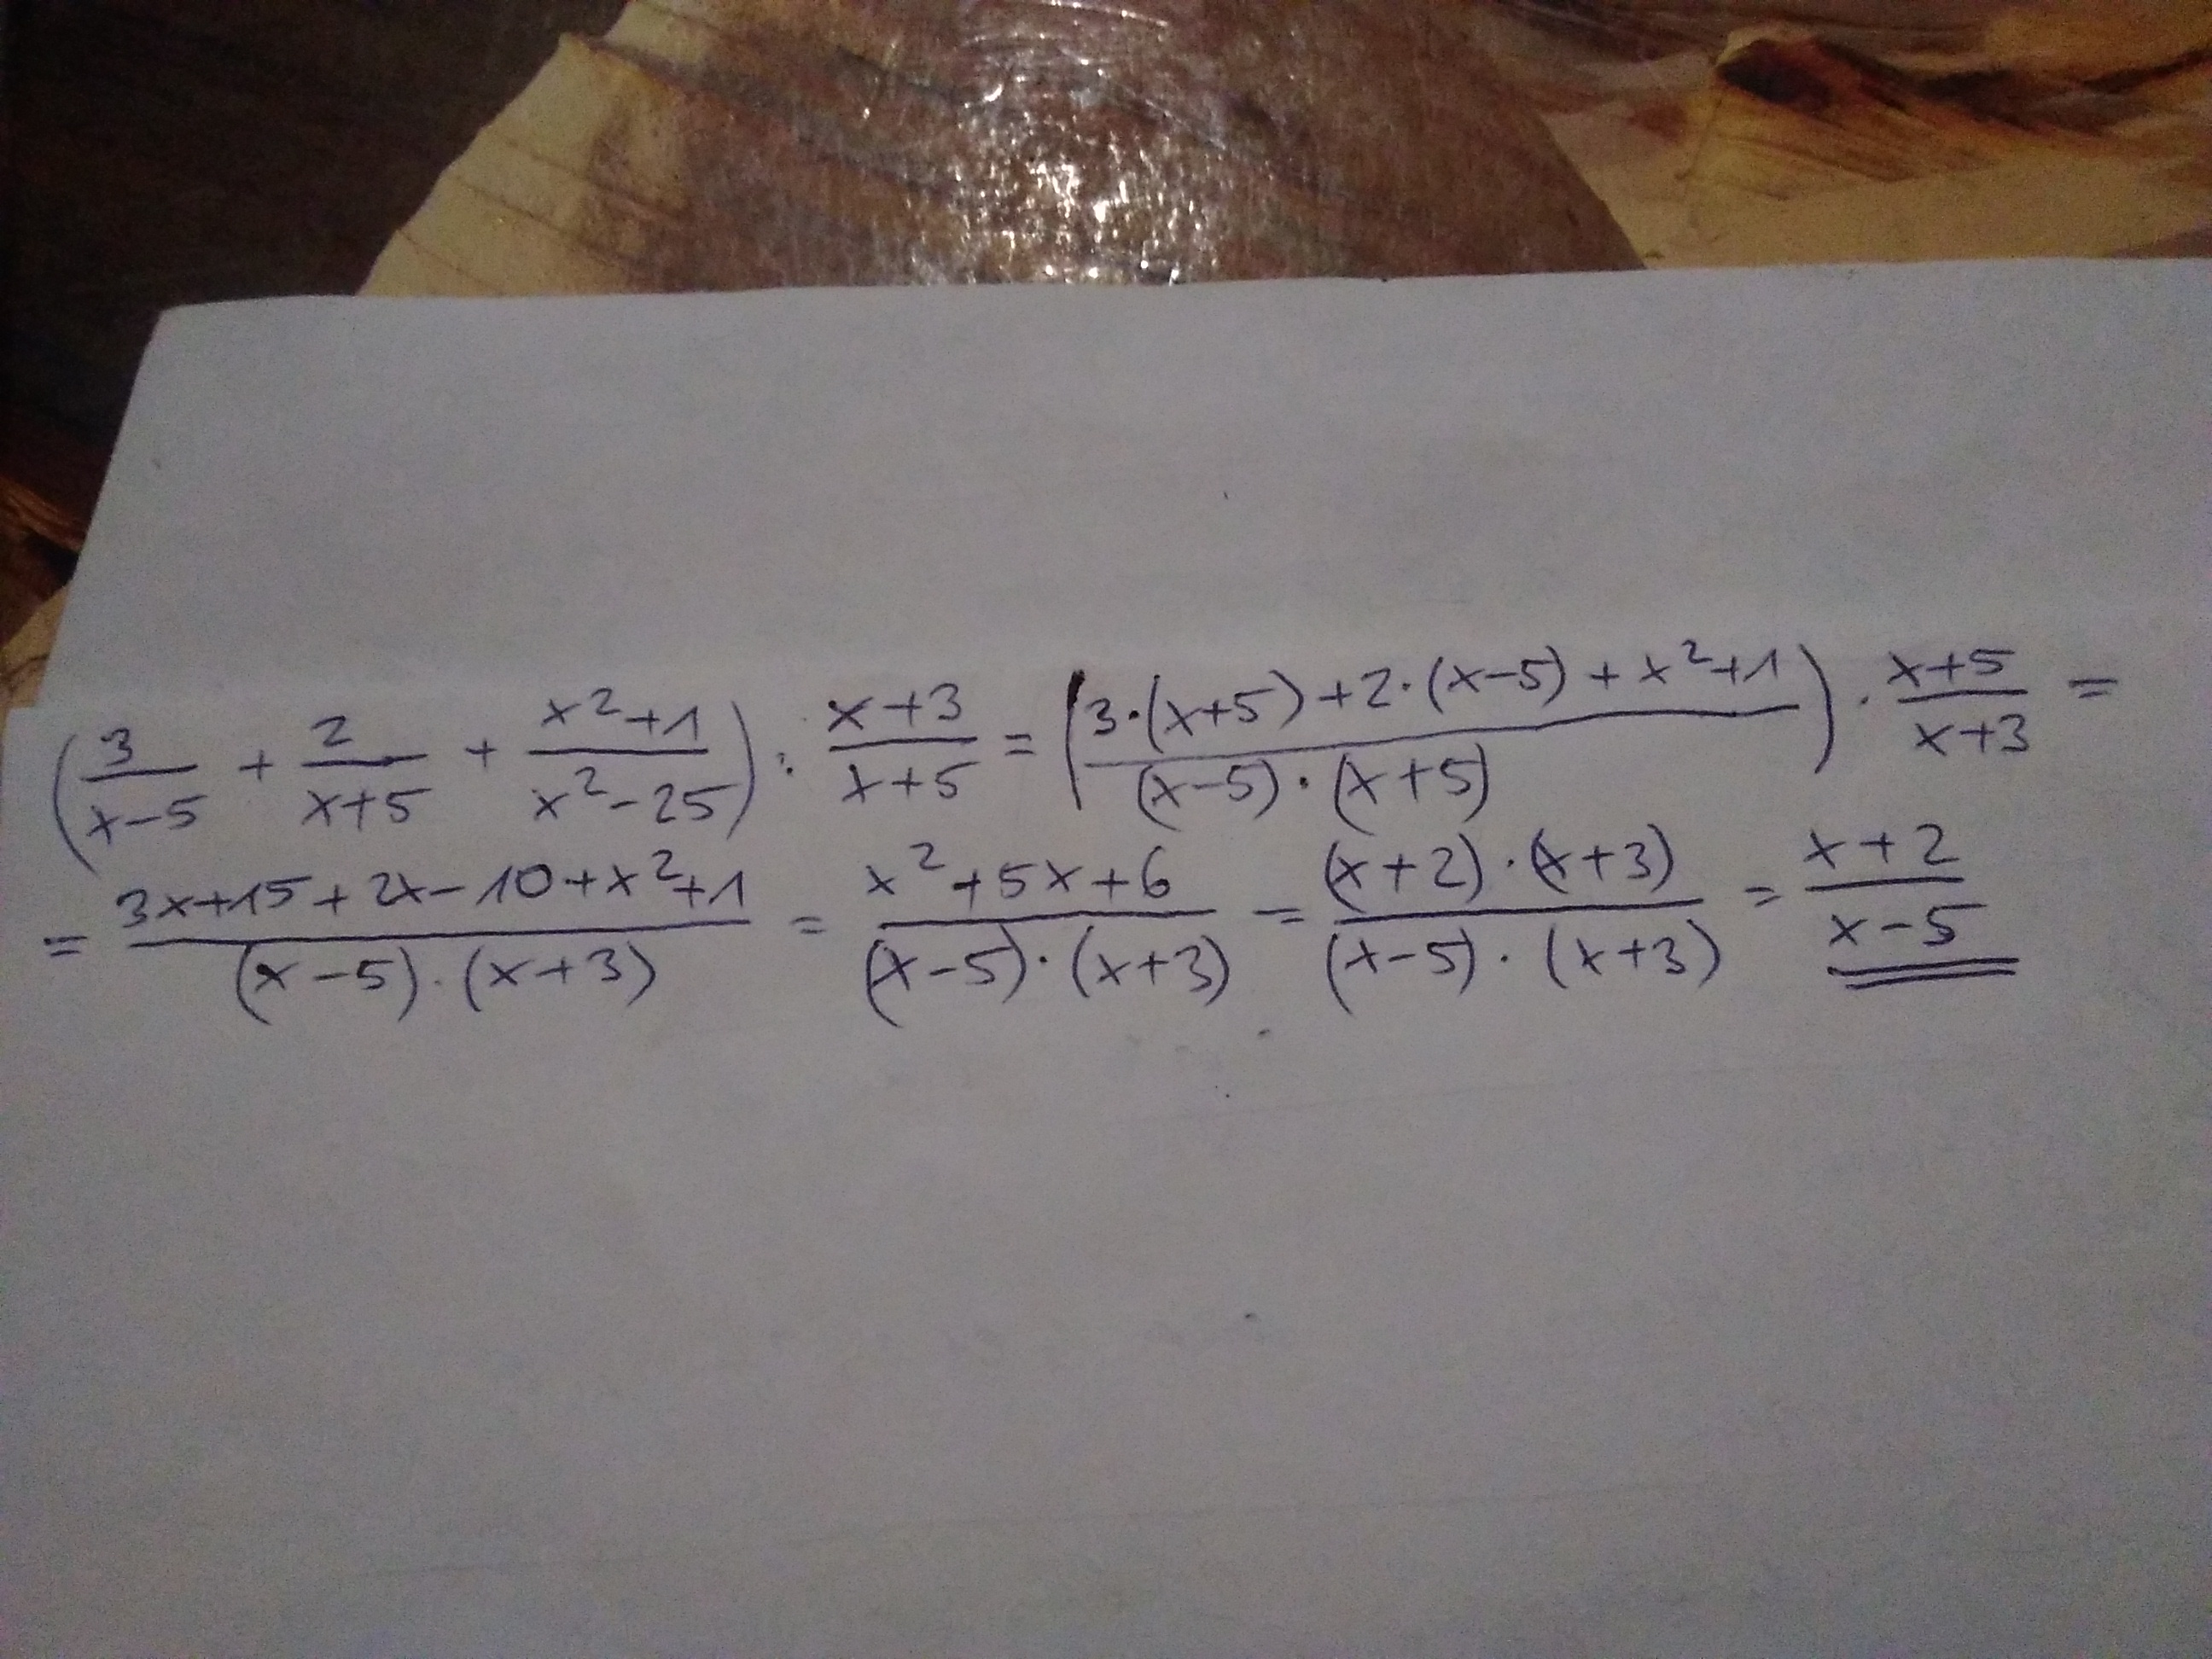 (3/(x-5) + 2/(x+5) + (x²+1)/(x²-25)) : (x+3)/(x+5) = ((3·(x+5)+2·(x-5)+x²+1)/((x-5)·(x+5))) · (x+5)/(x+3) =
= (3x+15+2x-10+x²+1)/((x-5)·(x+3)) = (x²+5x+6)/((x-5)·(x+3)) = ((x+2)·(x+3))/((x-5)·(x+3)) = (x+2)/(x-5)